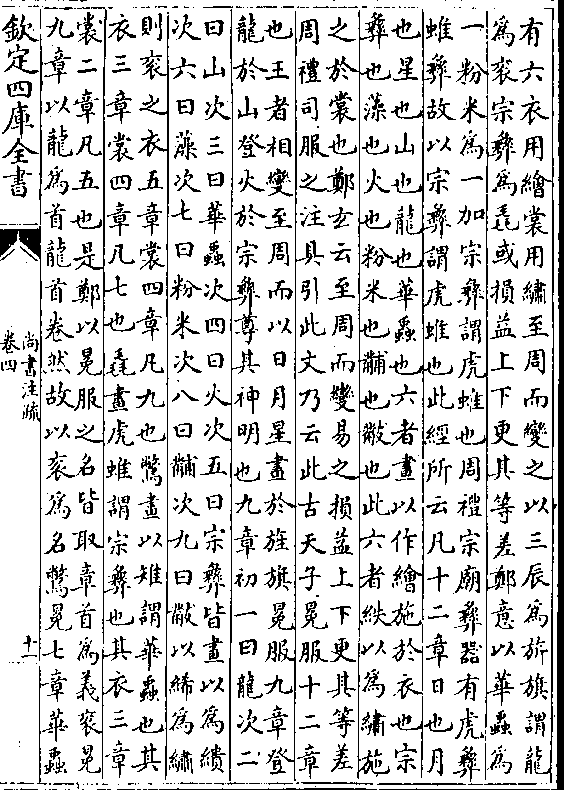 有六衣用繪裳用繡至周而變之以三辰為旂旗謂龍
為袞宗彝為毳或損益上下更其等差鄭意以華蟲為
一粉米為一加宗彝謂虎蜼也周禮宗廟彝器有虎彝
蜼彝故以宗彝謂虎蜼也此經所云凡十二章日也月
也星也山也龍也華蟲也六者畫以作繪施於衣也宗
彝也藻也火也粉米也黼也黻也此六者紩以為繡施
之於裳也鄭玄云至周而變易之損益上下更其等差
周禮司服之注具引此文乃云此古天子冕服十二章
也王者相變至周而以日月星畫於旌旗冕服九章登
龍於山登火於宗彝尊其神明也九章初一曰龍次二
曰山次三曰華蟲次四曰火次五曰宗彝皆畫以為繢
次六曰藻次七曰粉米次八曰黼次九曰黻以絺為繡
則袞之衣五章裳四章凡九也鷩畫以雉謂華蟲也其
衣三章裳四章凡七也毳畫虎蜼謂宗彝也其衣三章
裳二章凡五也是鄭以冕服之名皆取章首為義袞冕
九章以龍為首龍首卷然故以袞為名鷩冕七章華蟲
欽定四庫全書
尚書注疏
卷四
十一